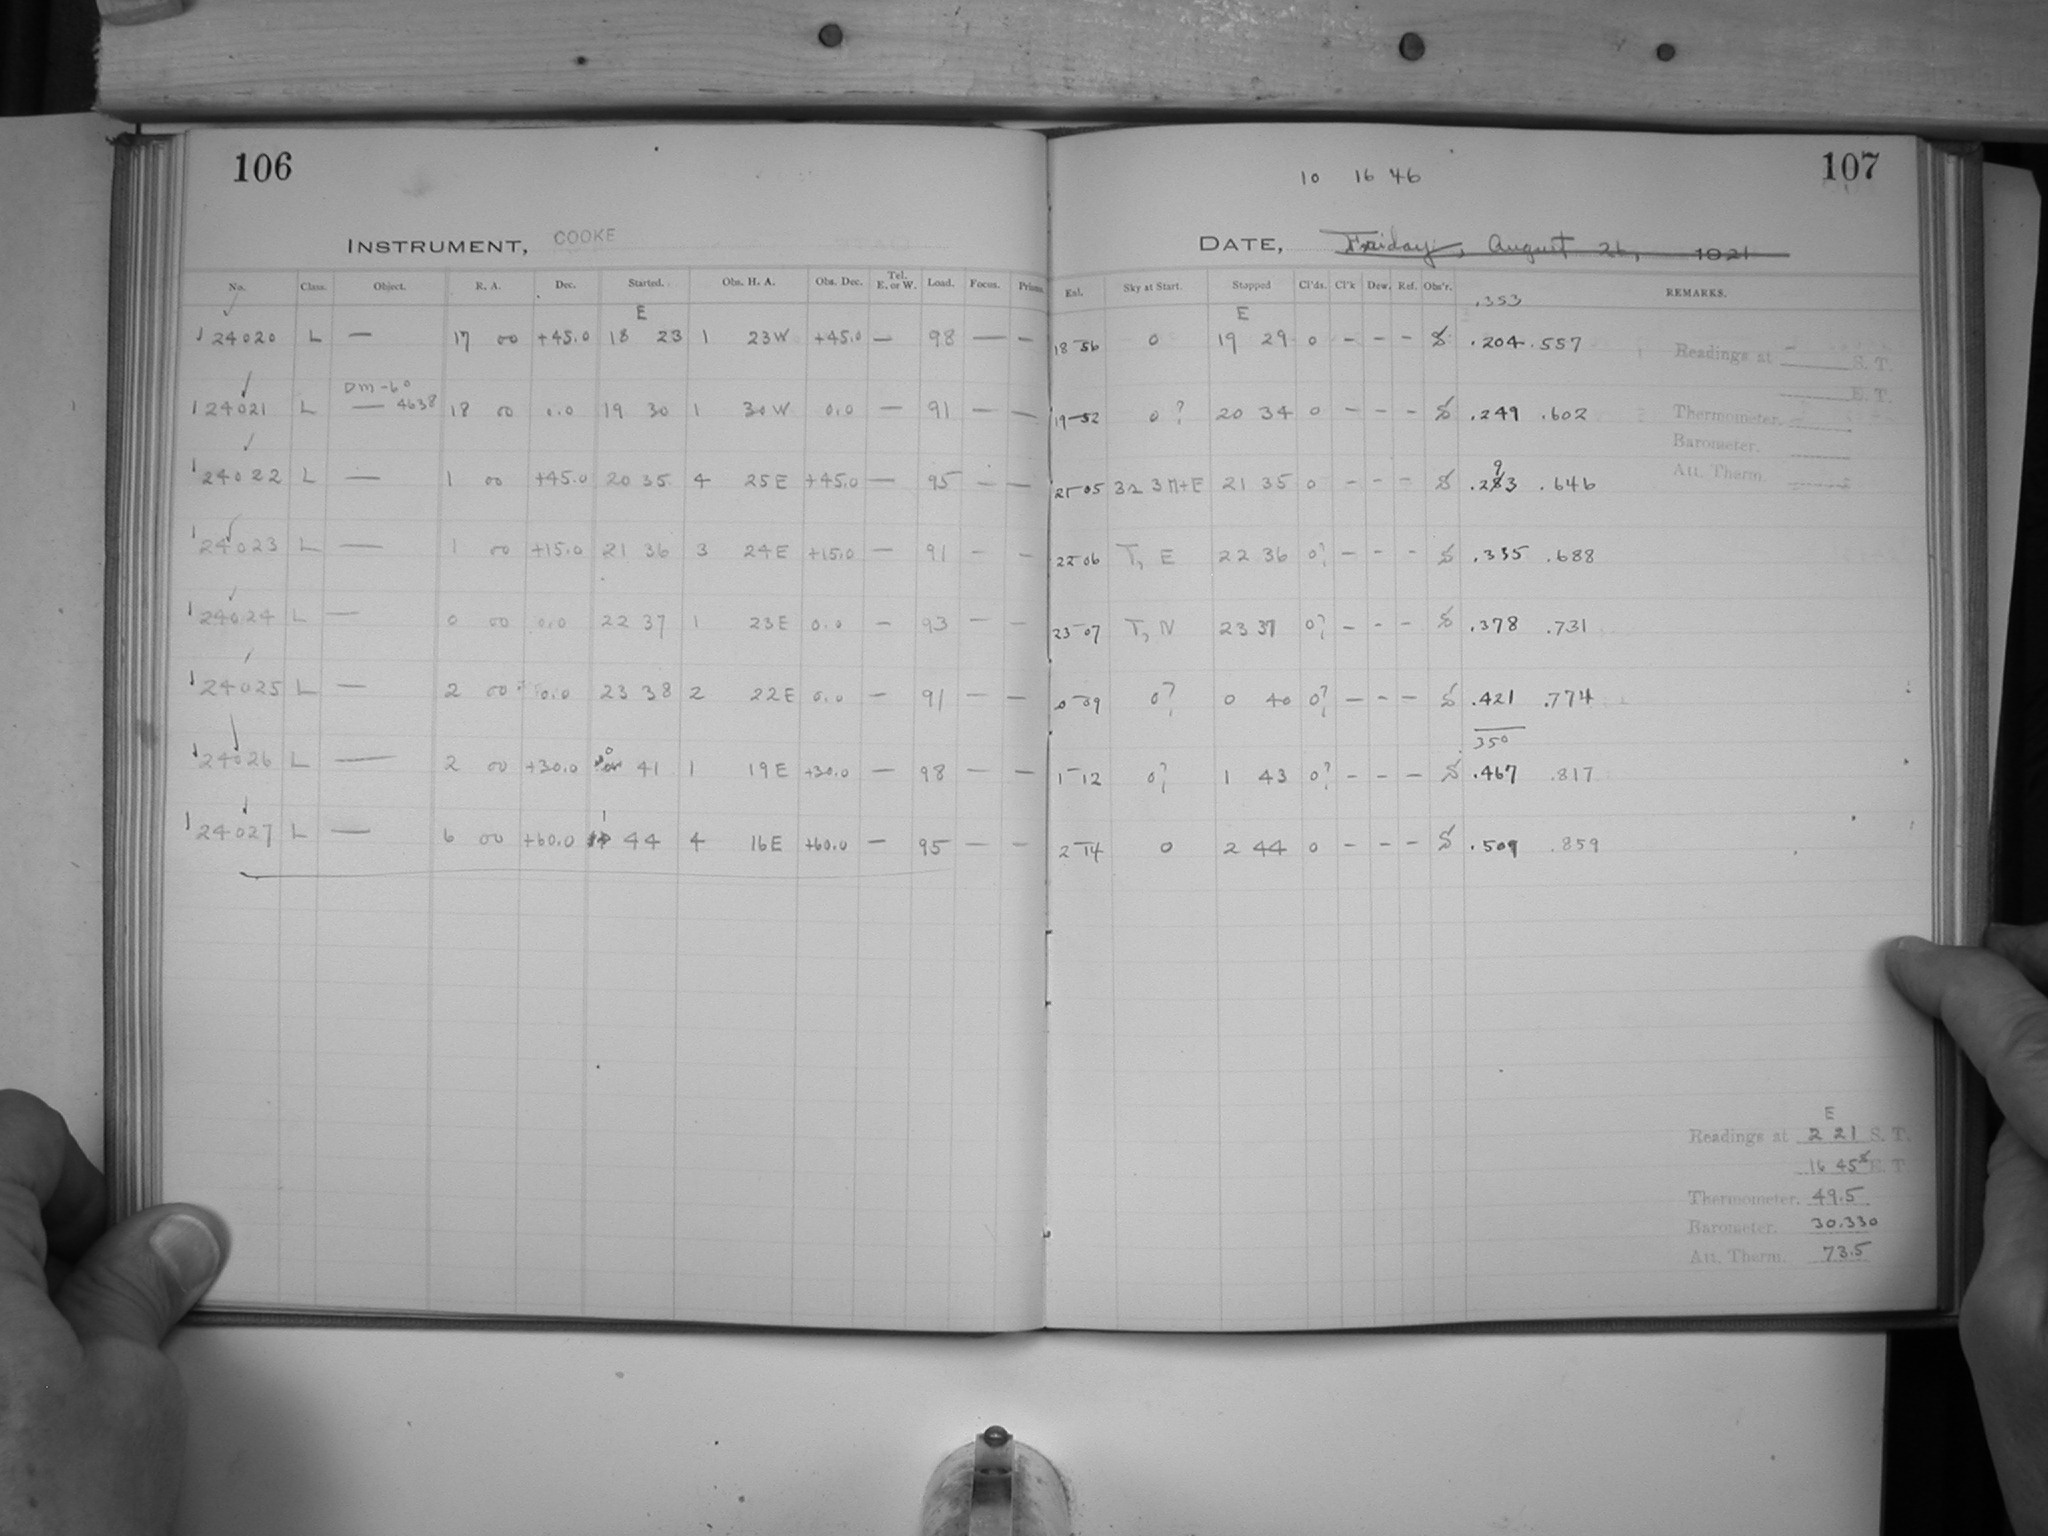 106
INSTRUMENT, COOKE
No. Class. Object. R. A. Dec. Started. Obs. H. A. Obs. Dec. Tel. E. or W. Load. Focus. Prisms.
E
24020 L — 17 00 +45.0 18 23 1 23 W +45.0 — 98 — —
DM -6°
24021 L — 4638 18 00 0.0 19 30 1 30 W 0.0 — 91 — —
24022 L — 1 00 +45.0 20 35 4 25 E +45.0 — 95 — —
24023 L — 1 00 +15.0 21 36 3 24 E +15.0 — 91 — —
24024 L — 0 00 0.0 22 37 1 23 E 0.0 — 93 — —
24025 L — 2 00 0.0 23 38 2 22 E 0.0 — 91 — —
24026 L — 2 00 +30.0 0 41 1 19 E +30.0 — 98 — —
24027 L — 6 00 +60.0 1 44 4 16 E +60.0 — 95 — —
107
10 16 46
DATE, Friday, August 26, 1921
Exl. Sky at Start. Stopped Cl'ds. Cl'k Dew. Ref. Obs'r. REMARKS.
.353
E
18 56 0 19 29 0 - - - S .204 .557
19 52 0? 20 34 0 - - - S .249 .602
9
21 05 21 35 0 - - - S .283 .646
22 06 T, E 22 36 0? - - - S .335 .688
23 07 T, N 23 37 0? - - - S .378 .731
0 09 0? 0 40 0? - - - S .421 .774
350
1 12 0? 1 43 0? - - - S .467 .817
2 14 0 2 44 0 - - - S .509 .859
Readings at S. T.
E. T.
Thermometer.
Barometer.
Att. Therm.
E
Readings at 2 21 S. T.
16 45 E. T.
Thermometer. 49.5
Barometer. 30.330
Att. Therm. 73.5